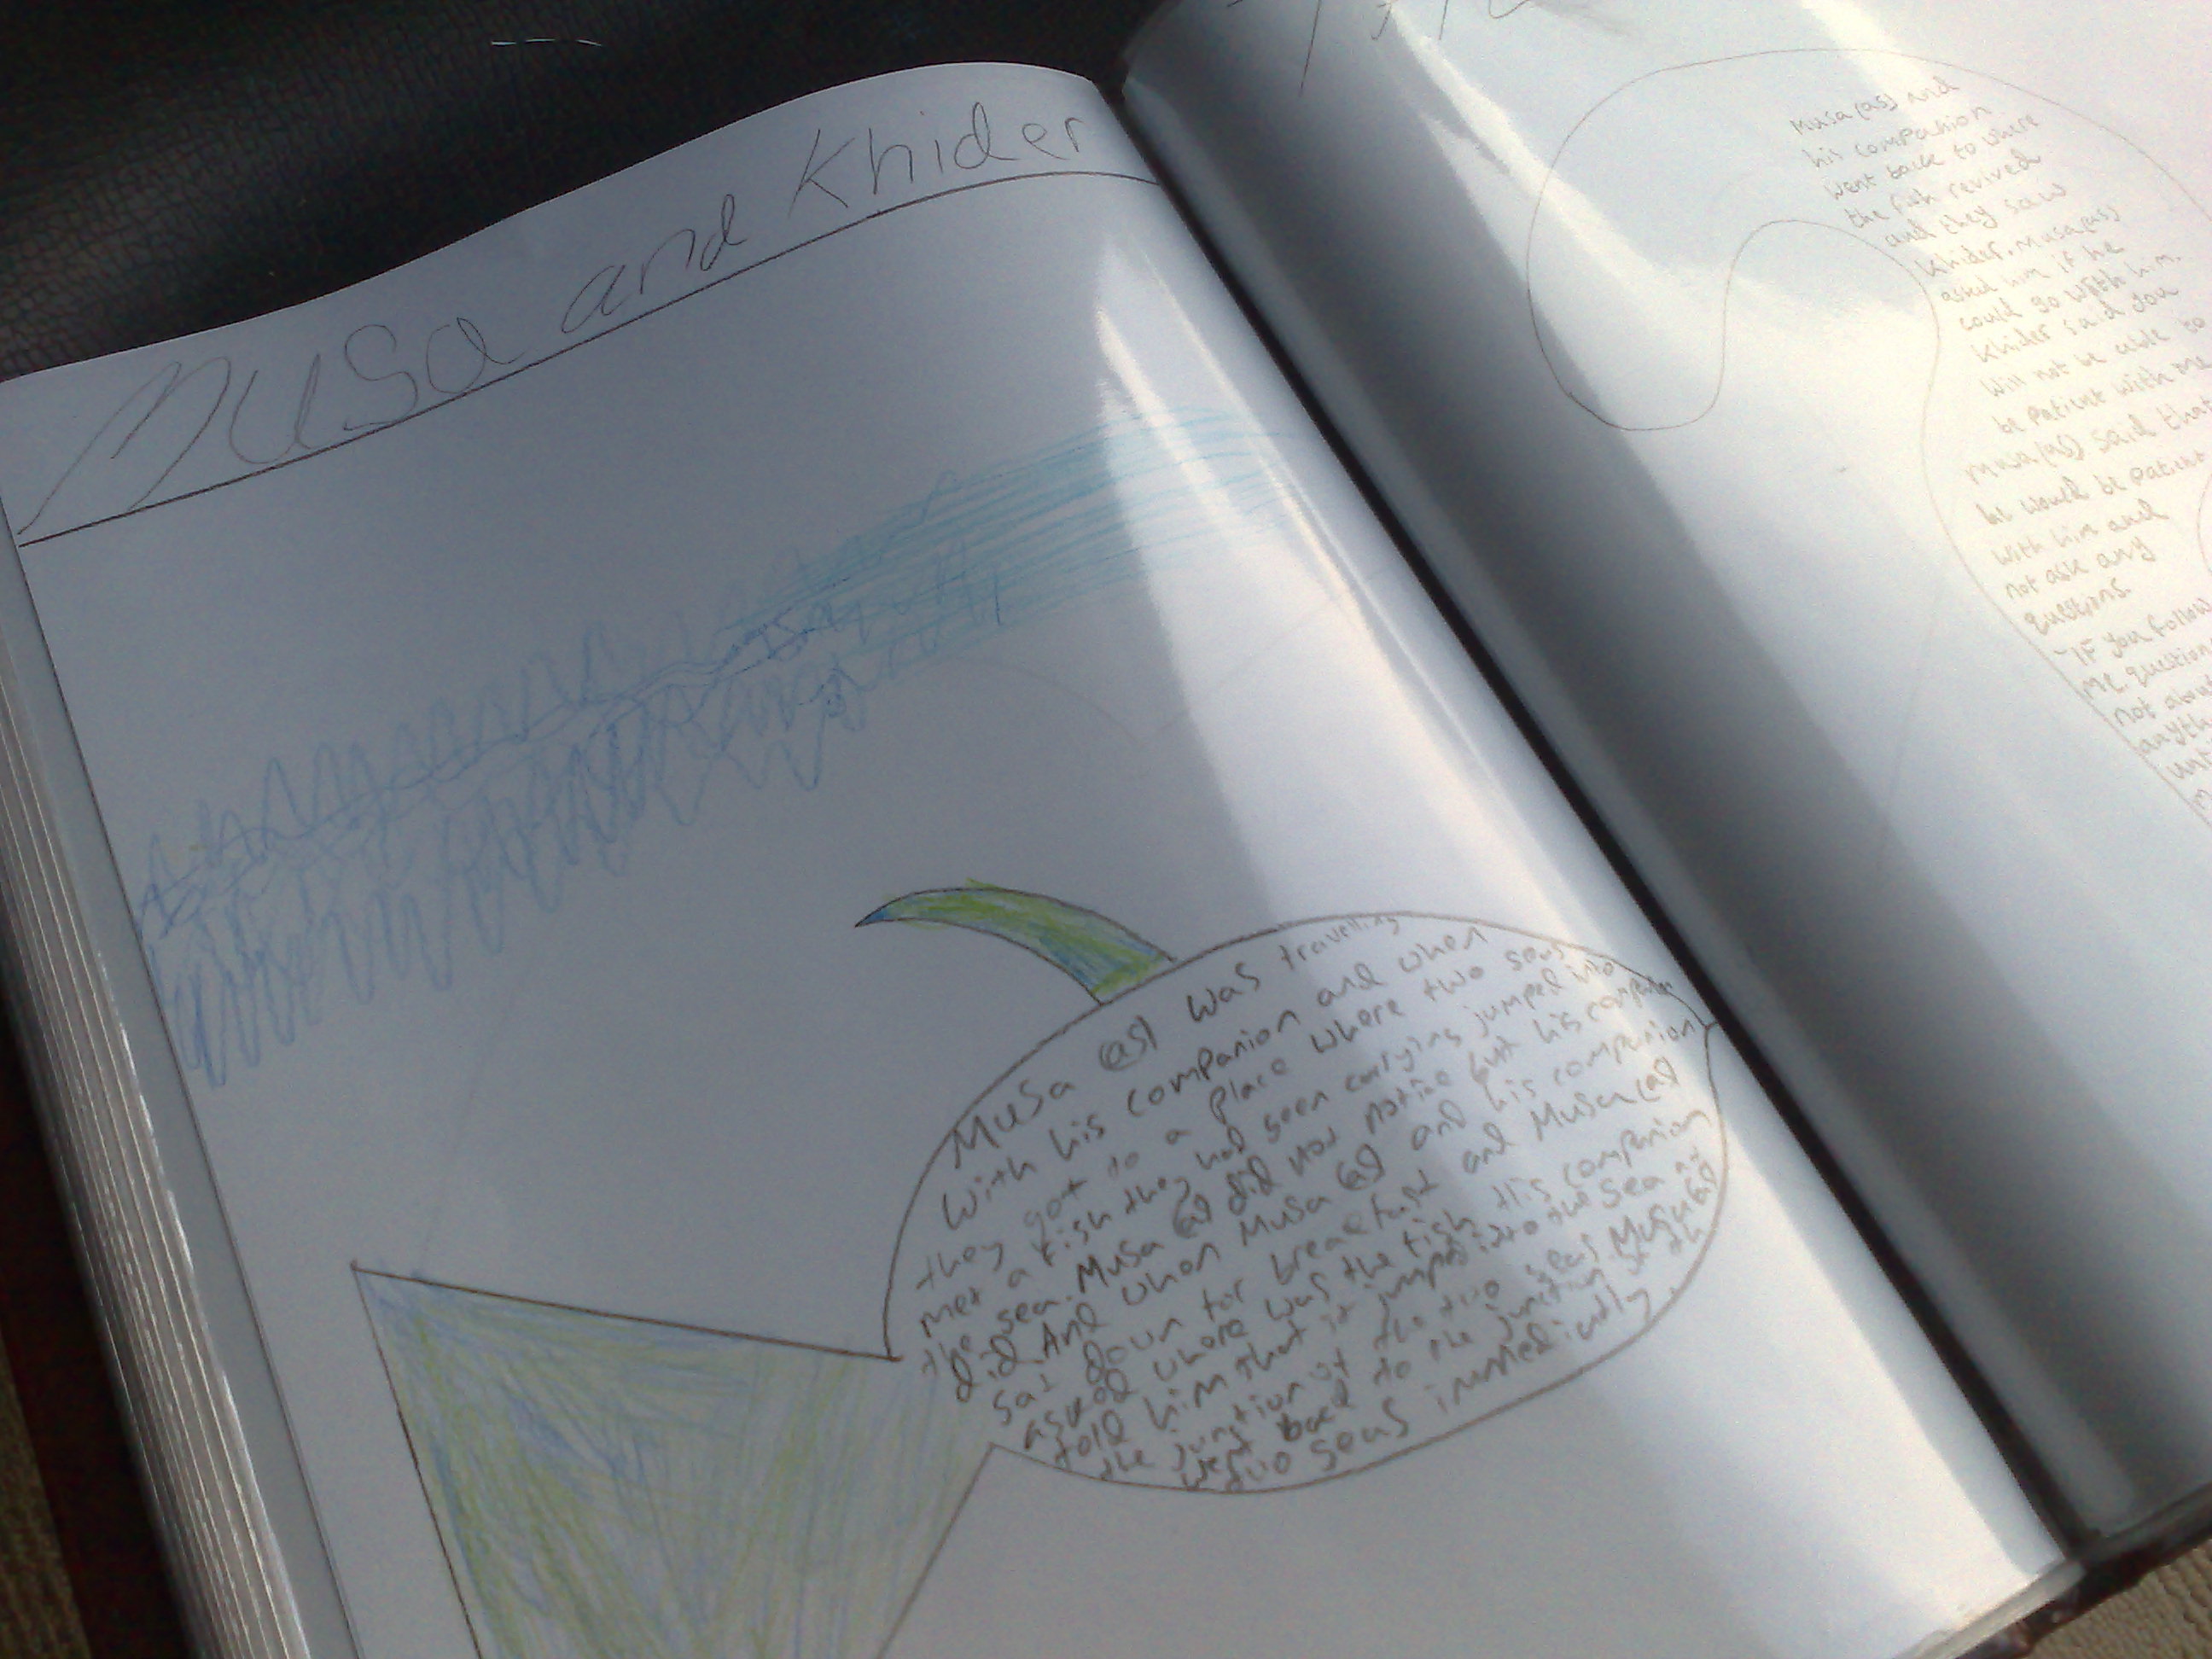 Musa and Khider
Musa (as) was travelling
with his companion and when
they got to a place where two seas
met a fish they had seen carying jumped into
the sea. Musa (as) did not notice but his companion
did. And when Musa (as) and his companion
sat down for breacfast and Musa (as)
asked where was the fish. His companion
told him that it jumped into the sea at
the junction of the two seas Musa (as)
went back to the junction of the
two seas immediently.
Musa (as) and
his companion
went back to where
the fish revived
and they saw
Khider. Musa (as)
asked him if he
could go with him.
Khider said you
will not be able to
be patient with me
Musa (as) said that
he would be patient
with him and
not ask any
questions.
"IF you follow
me question
not about